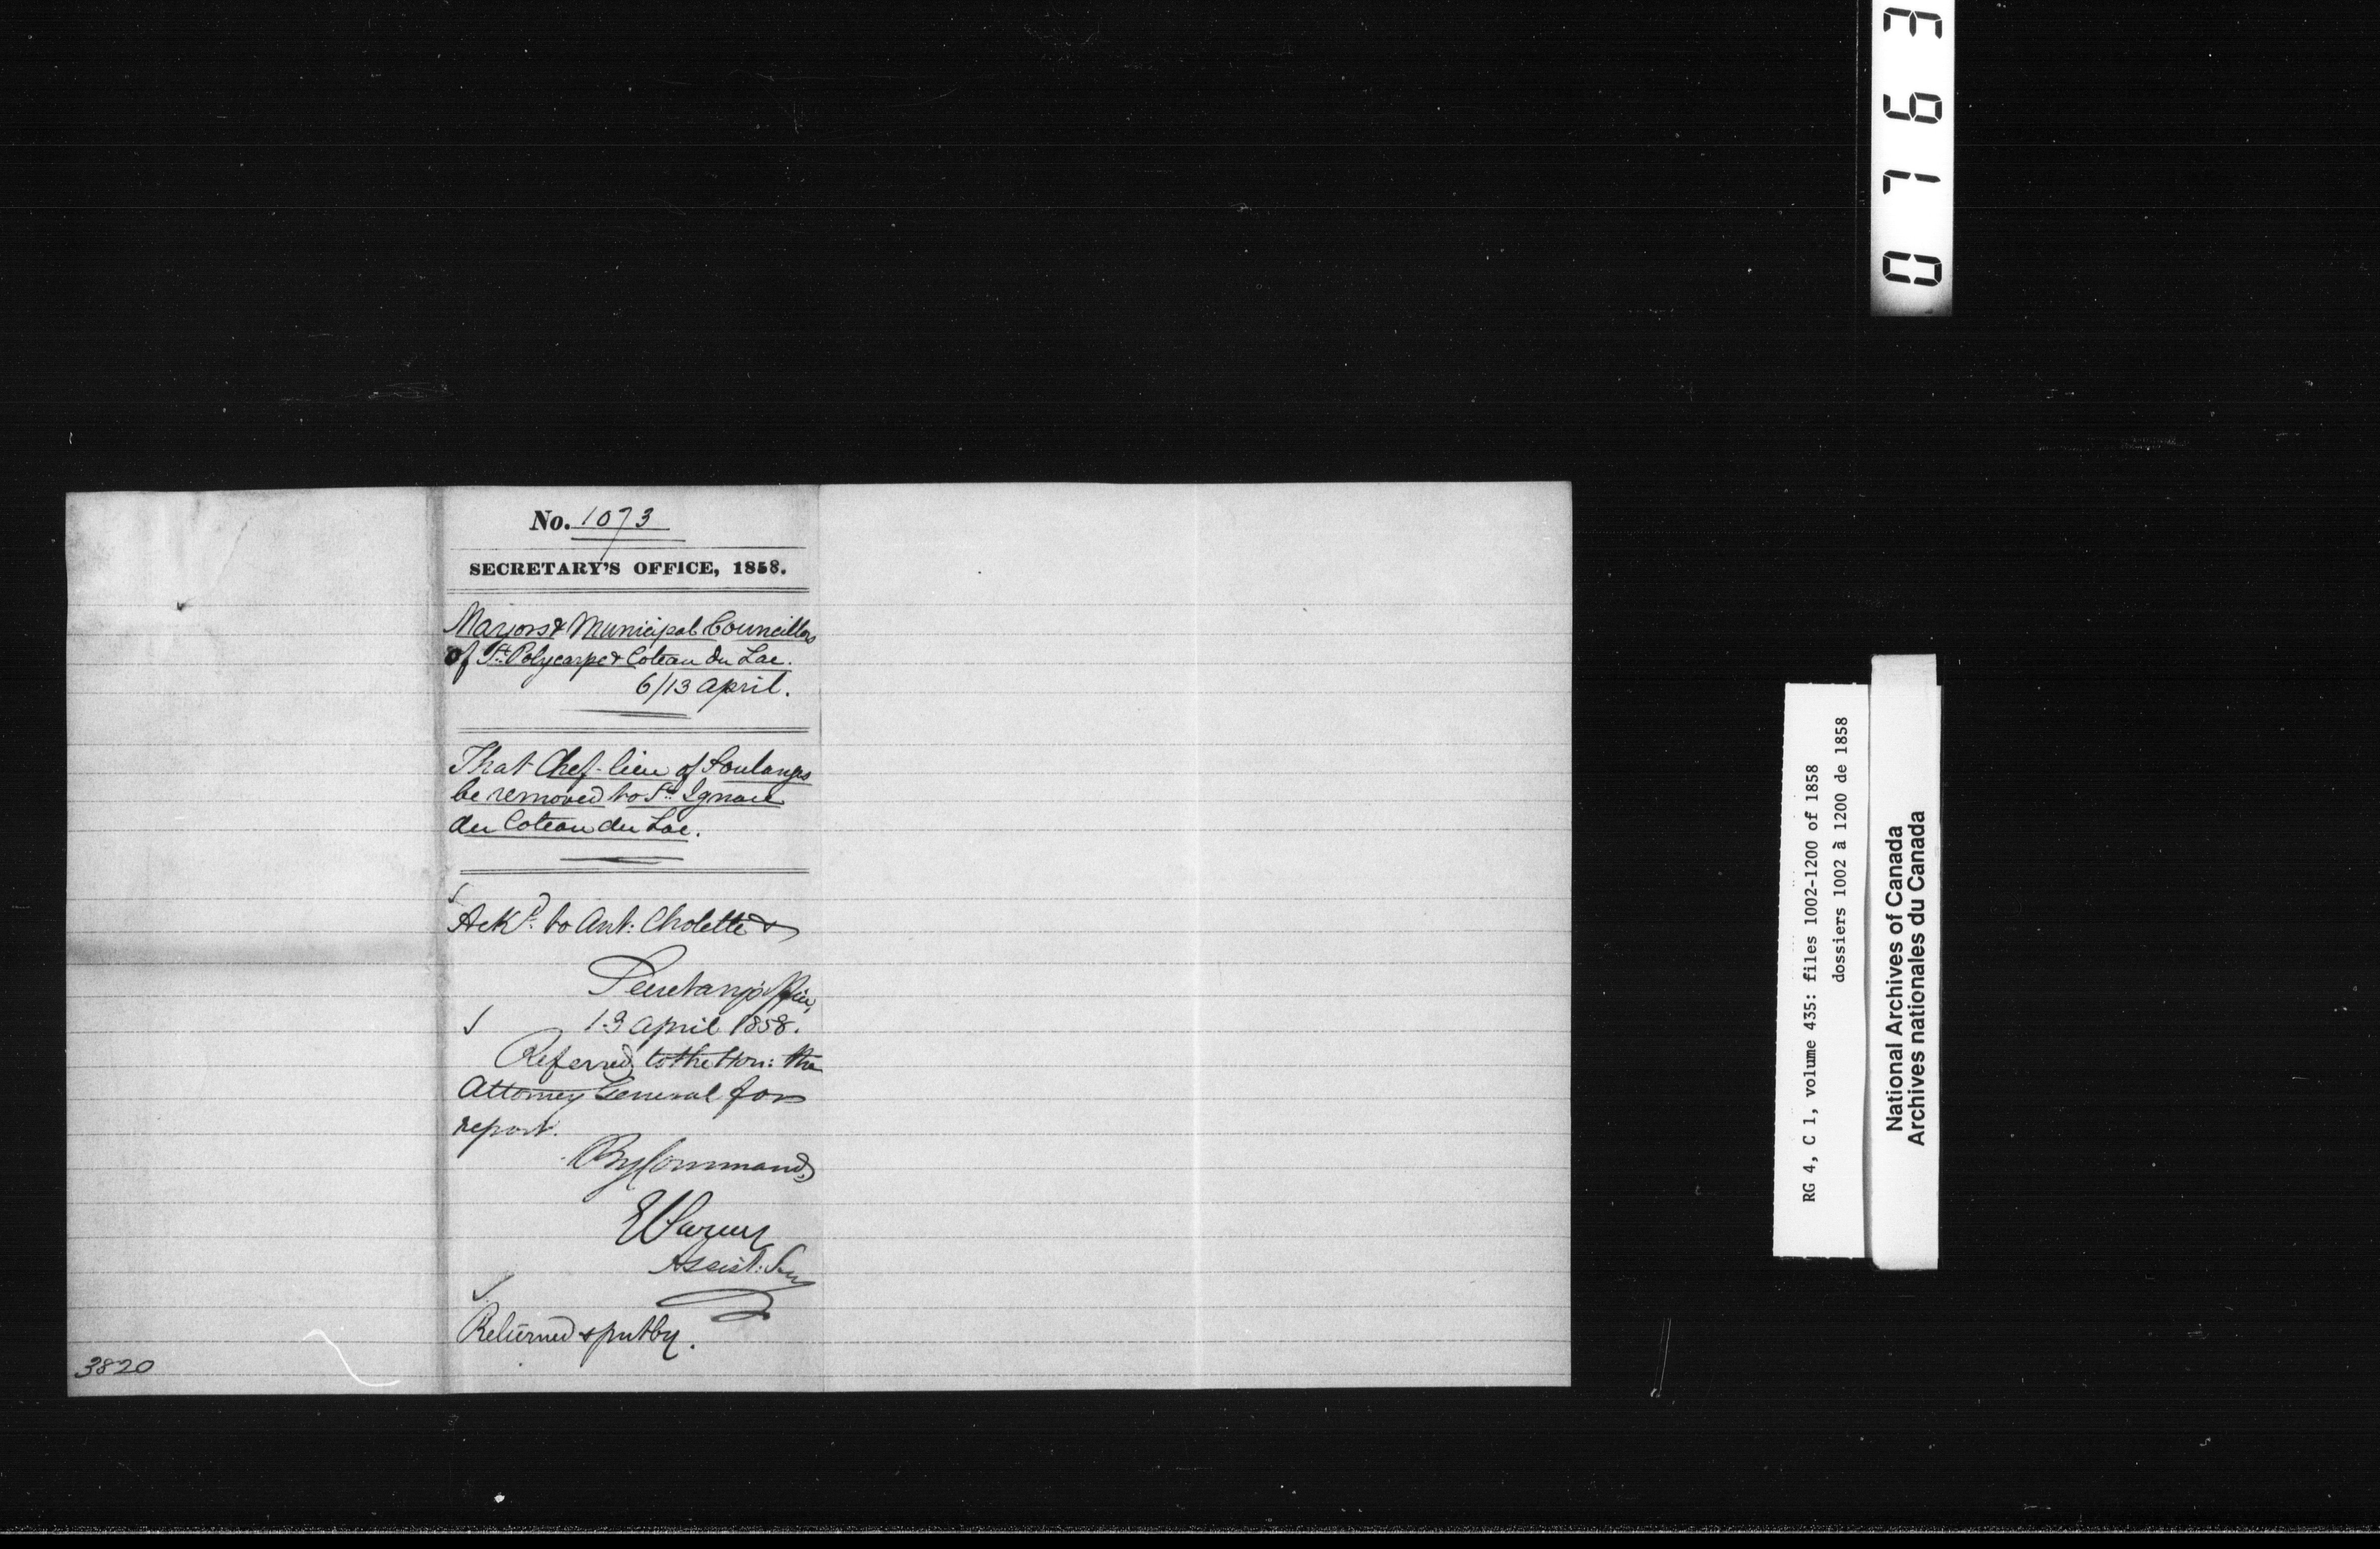 No. 1073
SECRETARY'S OFFICE, 1858.
Mayors & Municipal Councillors
of St. Polycarpe & Coteau du Lac.
6/13 April.
That Chef-lieu of Soulanges
be removed to St. Ignace
du Coteau du Lac.
Ackd. to Ant: Cholette &
Secretary's Office,
13 April 1858.
Referred to the Hon: the
Attorney General for
report.
By Command,
Assist: Secy
Returned & put by.
3820
0763
RG 4, C 1, volume 435: files 1002-1200 of 1858
dossiers 1002 à 1200 de 1858
National Archives of Canada
Archives nationales du Canada